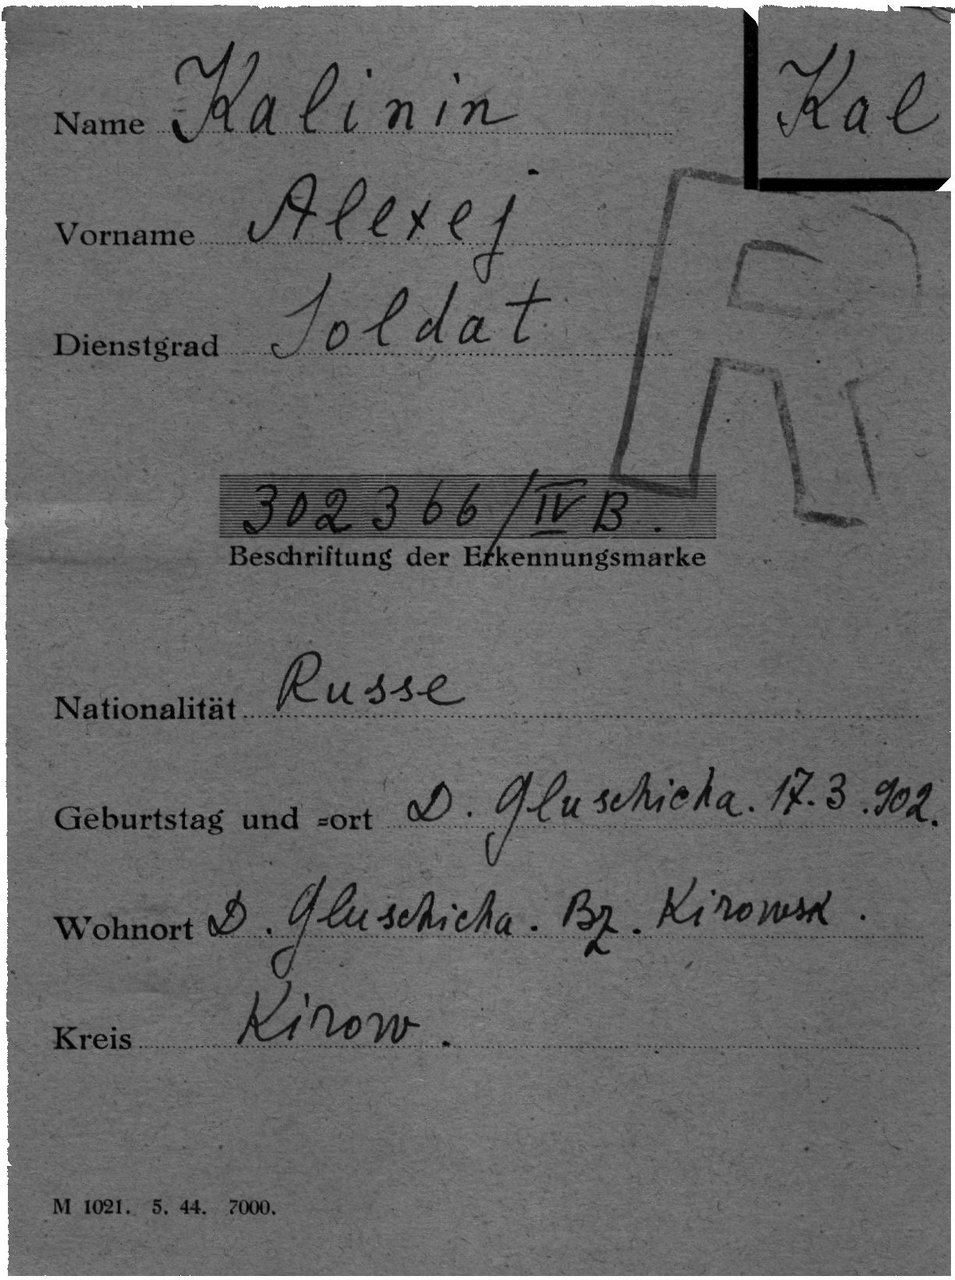 Name Kalinin
Kal
Vorname Alexej
R
Dienstgrad Soldat
302366/IV B.
Beschriftung der Erkennungsmarke
Nationalität Russe
Geburtstag und =ort D. Gluschicha. 17.3.902.
Wohnort D. Gluschicha. Bz. Kirowsk.
Kreis Kirow.
M 1021. 5. 44. 7000.